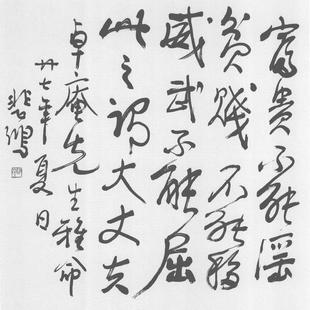 富贵不能淫
贫贱不能移
威武不能屈
此之谓大丈夫
卓庵先生雅命
廿七年夏日
悲鸿